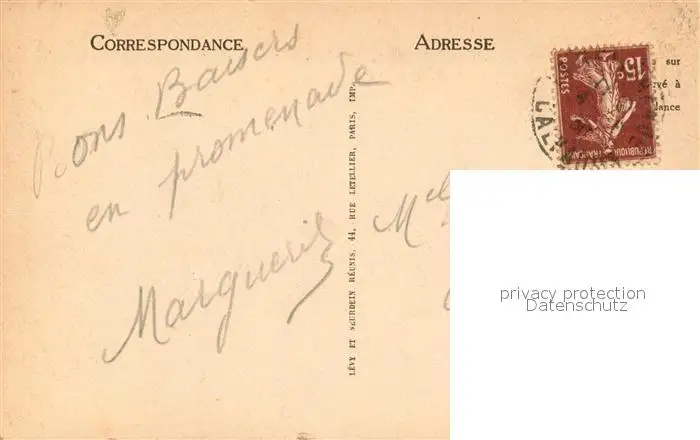 CORRESPONDANCE
ADRESSE
Bons Baisers
en promenade
Marguerite
LÉVY ET NEURDEIN RÉUNIS, 44, RUE LETELLIER, PARIS, IMP.
Mel
sur
vé à
dance
15c
POSTES
REPUBLIQUE FRANCAISE
privacy protection
Datenschutz